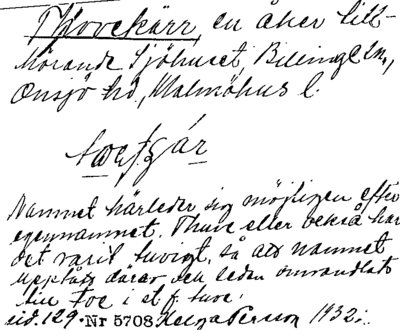 Thovekärr, en åker till-
hörande Sjöhuset, Billinge sn.,
Onsjö hd., Malmöhus l.
Namnet härleder sig möjligen efter
egennamnet. Thuve eller också har
det varit tuvigt, så att namnet
uppstått därav och leden omvandlats
till Tove i st. f. tuve.
sid. 129. Nr 5708 Helga Persson 1932.